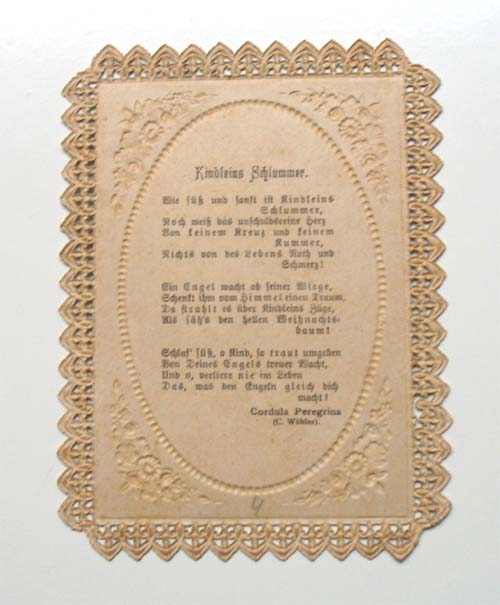 Kindleins Schlummer.
Wie süß und sanft ist Kindleins
Schlummer,
Noch weiß das unschuldsreine Herz
Von keinem Kreuz und keinem
Kummer,
Nichts von des Lebens Noth und
Schmerz!
Ein Engel wacht ob seiner Wiege,
Schenkt ihm vom Himmel einen Traum,
Da strahlt es über Kindleins Züge,
Als säh's den hellen Weihnachts-
baum!
Schlaf' süß, o Kind, so traut umgeben
Von Deines Engels treuer Wacht,
Und o, verliere nie im Leben
Das, was den Engeln gleich dich
macht!
Cordula Peregrina
(C. Wöhler).